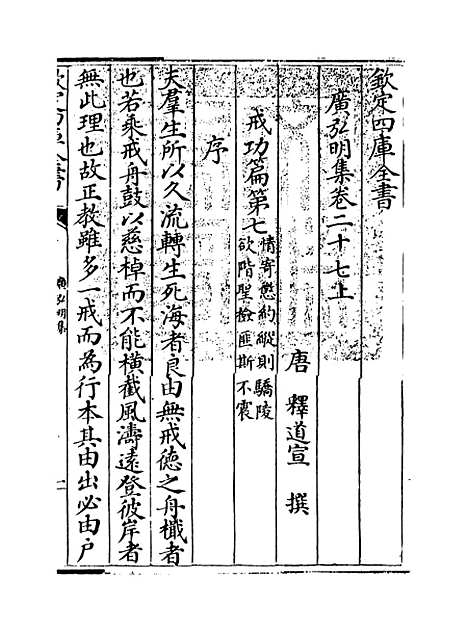 欽定四庫全書
廣弘明集卷二十七上
唐 釋道宣 撰
戒功篇第七
情寄懲約縱則驕陵
欲階聖檢匪斯不震
序
夫羣生所以久流轉生死海者良由無戒德之舟檝者
也若乘戒舟鼓以慈棹而不能橫截風濤遠登彼岸者
無此理也故正教雖多一戒而為行本其由出必由戶
欽定四庫全書
廣弘明集
一